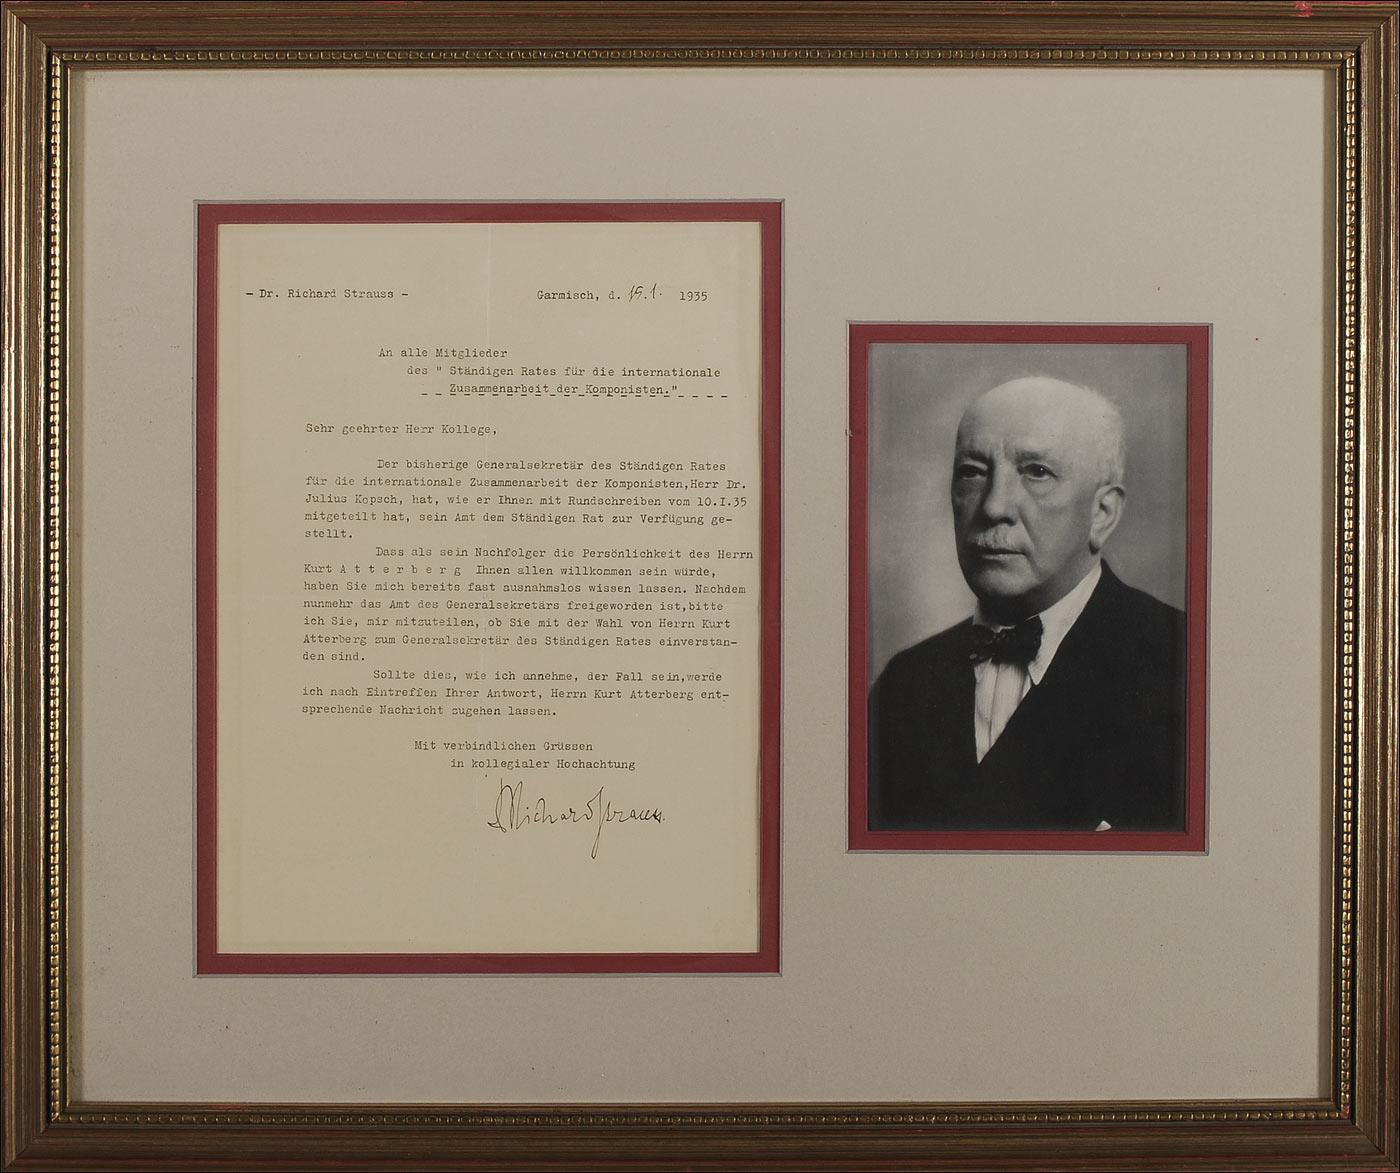 - Dr. Richard Strauss -
Garmisch, d. 15.1. 1935
An alle Mitglieder
des " Ständigen Rates für die internationale
Zusammenarbeit der Komponisten."
Sehr geehrter Herr Kollege,
Der bisherige Generalsekretär des Ständigen Rates
für die internationale Zusammenarbeit der Komponisten,Herr Dr.
Julius Kopsch, hat, wie er Ihnen mit Rundschreiben vom 10.I.35
mitgeteilt hat, sein Amt dem Ständigen Rat zur Verfügung ge-
stellt.
Dass als sein Nachfolger die Persönlichkeit des Herrn
Kurt A t t e r b e r g Ihnen allen willkommen sein würde,
haben Sie mich bereits fast ausnahmslos wissen lassen. Nachdem
nunmehr das Amt des Generalsekretärs freigeworden ist,bitte
ich Sie, mir mitzuteilen, ob Sie mit der Wahl von Herrn Kurt
Atterberg zum Generalsekretär des Ständigen Rates einverstan-
den sind.
Sollte dies, wie ich annehme, der Fall sein,werde
ich nach Eintreffen Ihrer Antwort, Herrn Kurt Atterberg ent-
sprechende Nachricht zugehen lassen.
Mit verbindlichen Grüssen
in kollegialer Hochachtung
Richard Strauss.